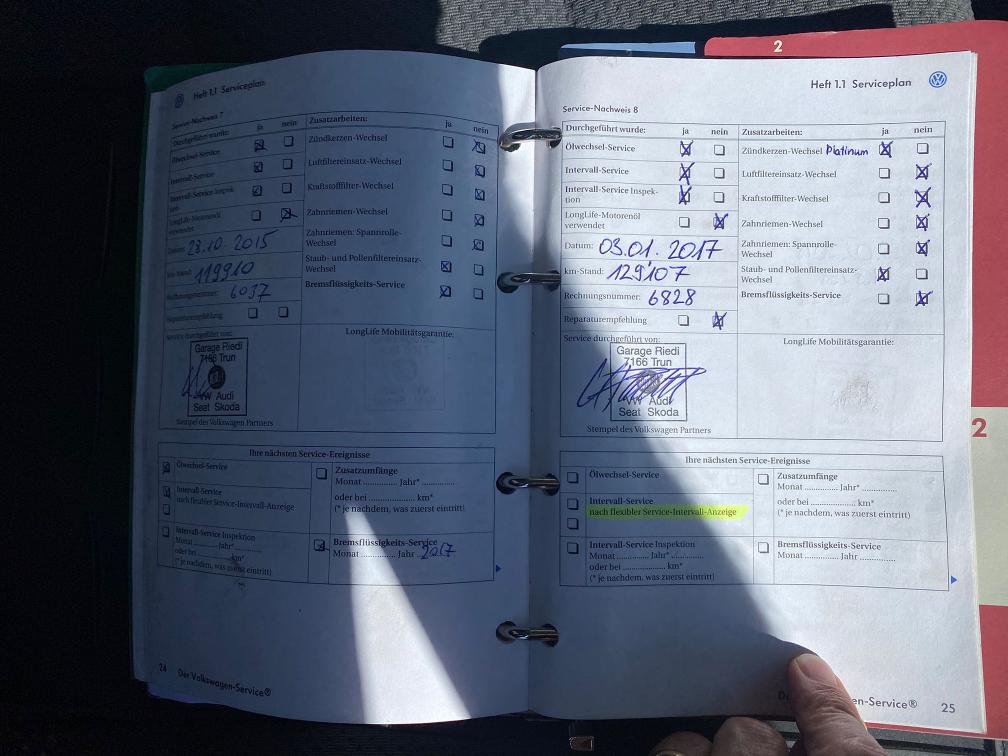 2
Heft 1.1 Serviceplan
Service-Nachweis 7
Durchgeführt wurde: ja nein
Ölwechsel-Service
Intervall-Service
Intervall-Service Inspek-
tion
LongLife-Motorenöl
verwendet
Datum: 28.10-2015
km-Stand: 119910
Rechnungsnummer: 6037
Reparaturempfehlung
Zusatzarbeiten: ja nein
Zündkerzen-Wechsel
Luftfiltereinsatz-Wechsel
Kraftstofffilter-Wechsel
Zahnriemen-Wechsel
Zahnriemen: Spannrolle-
Wechsel
Staub- und Pollenfiltereinsatz-
Wechsel
Bremsflüssigkeits-Service
Service durchgeführt von:
Garage Riedi
7166 Trun
VW Audi
Seat Skoda
Stempel des Volkswagen Partners
LongLife Mobilitätsgarantie:
Ihre nächsten Service-Ereignisse
Ölwechsel-Service
Intervall-Service
nach flexibler Service-Intervall-Anzeige
Intervall-Service Inspektion
Monat ............ Jahr* ............
oder bei ............ km*
(* je nachdem, was zuerst eintritt)
Zusatzumfänge
Monat ............ Jahr* ............
oder bei ............ km*
(* je nachdem, was zuerst eintritt)
Bremsflüssigkeits-Service
Monat ............ Jahr 2017
24 Der Volkswagen-Service®
Heft 1.1 Serviceplan
Service-Nachweis 8
Durchgeführt wurde: ja nein
Ölwechsel-Service
Intervall-Service
Intervall-Service Inspek-
tion
LongLife-Motorenöl
verwendet
Datum: 03.01.2017
km-Stand: 129107
Rechnungsnummer: 6828
Reparaturempfehlung
Zusatzarbeiten: ja nein
Zündkerzen-Wechsel Platinum
Luftfiltereinsatz-Wechsel
Kraftstofffilter-Wechsel
Zahnriemen-Wechsel
Zahnriemen: Spannrolle-
Wechsel
Staub- und Pollenfiltereinsatz-
Wechsel
Bremsflüssigkeits-Service
Service durchgeführt von:
Garage Riedi
7166 Trun
VW Audi
Seat Skoda
Stempel des Volkswagen Partners
LongLife Mobilitätsgarantie:
Ihre nächsten Service-Ereignisse
Ölwechsel-Service
Intervall-Service
nach flexibler Service-Intervall-Anzeige
Intervall-Service Inspektion
Monat ............ Jahr* ............
oder bei ............ km*
(* je nachdem, was zuerst eintritt)
Zusatzumfänge
Monat ............ Jahr* ............
oder bei ............ km*
(* je nachdem, was zuerst eintritt)
Bremsflüssigkeits-Service
Monat ............ Jahr ............
en-Service® 25
2